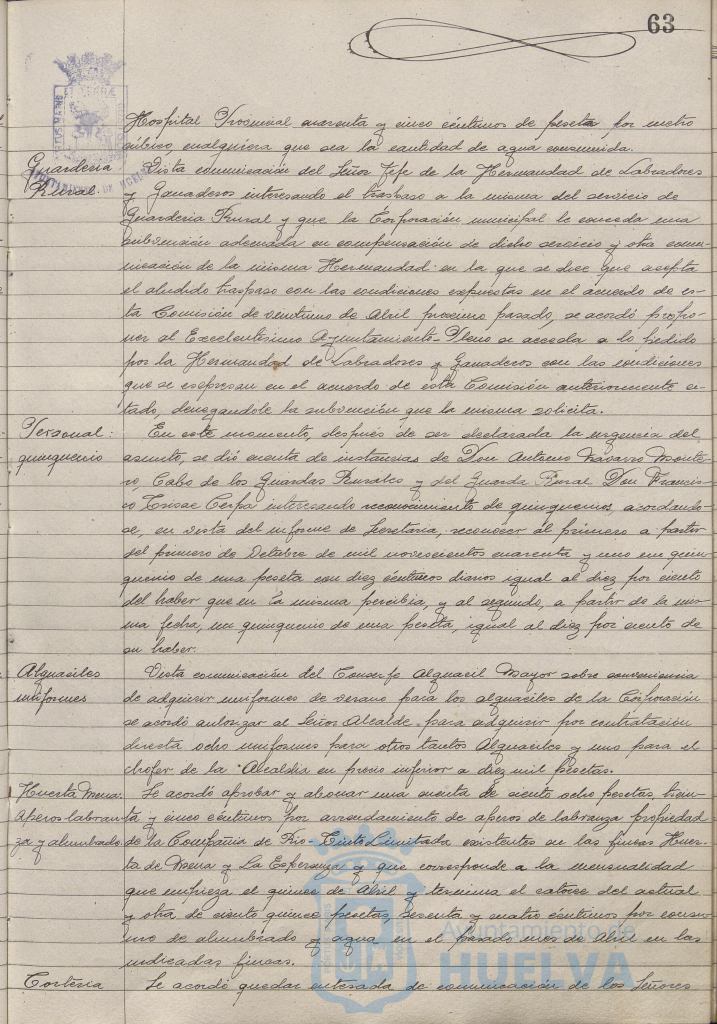 63
Hospital Provincial cuarenta y cinco céntimos de peseta por metro
cúbico, cualquiera que sea la cantidad de agua consumida.
Guardería
Rural.
Vista comunicación del Señor Jefe de la Hermandad de Labradores
y Ganaderos interesando el traspaso a la misma del servicio de
Guardería Rural y que la Corporación municipal le conceda una
subvención adecuada en compensación de dicho servicio y otra comu-
nicación de la misma Hermandad en la que se dice que acepta
el aludido traspaso con las condiciones expuestas en el acuerdo de es-
ta Comisión de veintiuno de Abril próximo pasado, se acordó propo-
ner al Excelentísimo Ayuntamiento-Pleno se acceda a lo pedido
por la Hermandad de Labradores y Ganaderos con las condiciones
que se expresan en el acuerdo de esta Comisión anteriormente ci-
tado, denegandole la subvención que la misma solicita.
Personal:
quinquenio
En este momento, después de ser declarada la urgencia del
asunto, se dió cuenta de instancias de Don Antonio Navarro Monte-
ro, Cabo de los Guardas Rurales y del Guarda Rural Don Francis-
co Cerpa interesando reconocimiento de quinquenios, acordando-
se, en vista del informe de Secretaría, reconocer al primero a partir
del primero de Octubre de mil novecientos cuarenta y uno un quin-
quenio de una peseta con diez céntimos diarios igual al diez por ciento
del haber que en la misma percibía, y al segundo, a partir de la mis-
ma fecha, un quinquenio de una peseta, igual al diez por ciento de
su haber.
Alguaciles
uniformes
Vista comunicación del Conserje Alguacil Mayor sobre conveniencia
de adquirir uniformes de verano para los alguaciles de la Corporación
se acordó autorizar al Señor Alcalde para adquirir por contratación
directa ocho uniformes para otros tantos Alguaciles y uno para el
chofer de la Alcaldía en precio inferior a diez mil pesetas.
Huerta Mena.
Aperos labran-
za y alumbrado.
Se acordó aprobar y abonar una cuenta de ciento ocho pesetas, trein-
ta y cinco céntimos por arrendamiento de aperos de labranza propiedad
de la Compañía de Rio-Tinto Limitada existentes en las fincas Huer-
ta de Mena y La Esperanza y que corresponde a la mensualidad
que empieza el quince de Abril y termina el catorce del actual
y otra de ciento quince pesetas, sesenta y cuatro céntimos por consu-
mo de alumbrado y agua en el pasado mes de Abril en las
indicadas fincas.
Cortesía
Se acordó quedar enterada de comunicación de los Señores
Ayuntamiento de
HUELVA